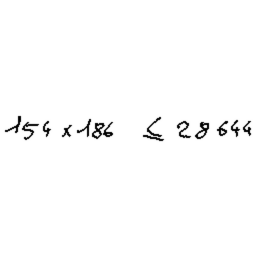 154 x 186 ≤ 28644